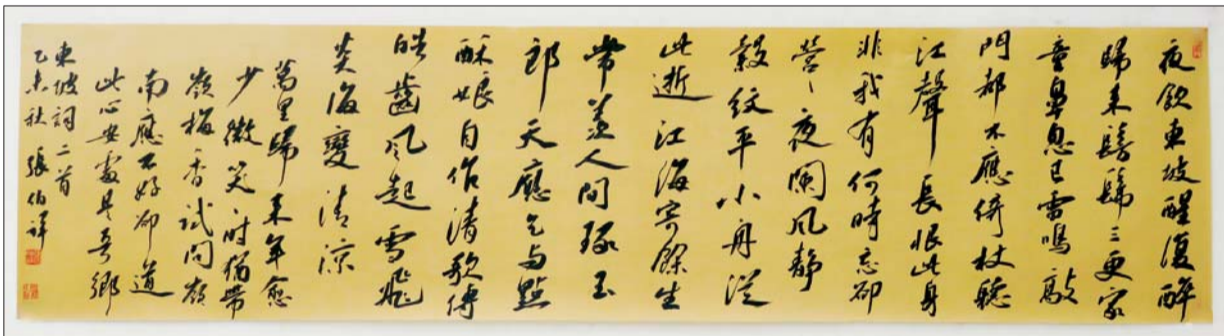 夜飲東坡醒復醉
歸來髣髴三更家
童鼻息已雷鳴敲
門都不應倚杖聽
江聲 長恨此身
非我有何時忘卻
營〻夜闌風靜
縠紋平小舟從
此逝江海寄餘生
常羨人間琢玉
郎天應乞與點
酥娘自作清歌傳
皓齒風起雪飛
炎海變清涼
萬里歸來年愈
少微笑時猶帶
嶺梅香試問嶺
南應不好卻道
此心安處是吾鄉
東坡詞二首
乙未秋 張伯